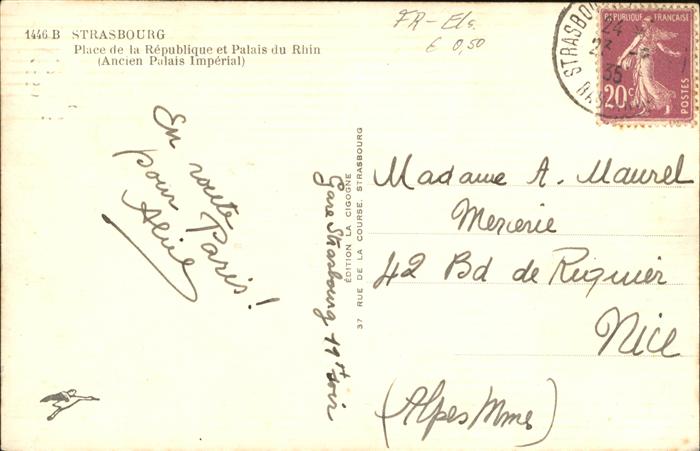 1446 B STRASBOURG
Place de la République et Palais du Rhin
(Ancien Palais Impérial)
FR-Els.
€ 0,50
STRASBOURG
24
23
35
RÉPUBLIQUE FRANÇAISE
20c
POSTES
En route
pour Paris!
Gare Strasbourg 11h soir
ÉDITION LA CIGOGNE
37 RUE DE LA COURSE. STRASBOURG
Madame A. Maurel
Mercerie
42 Bd de Riquier
Nice
(Alpes Mmes)